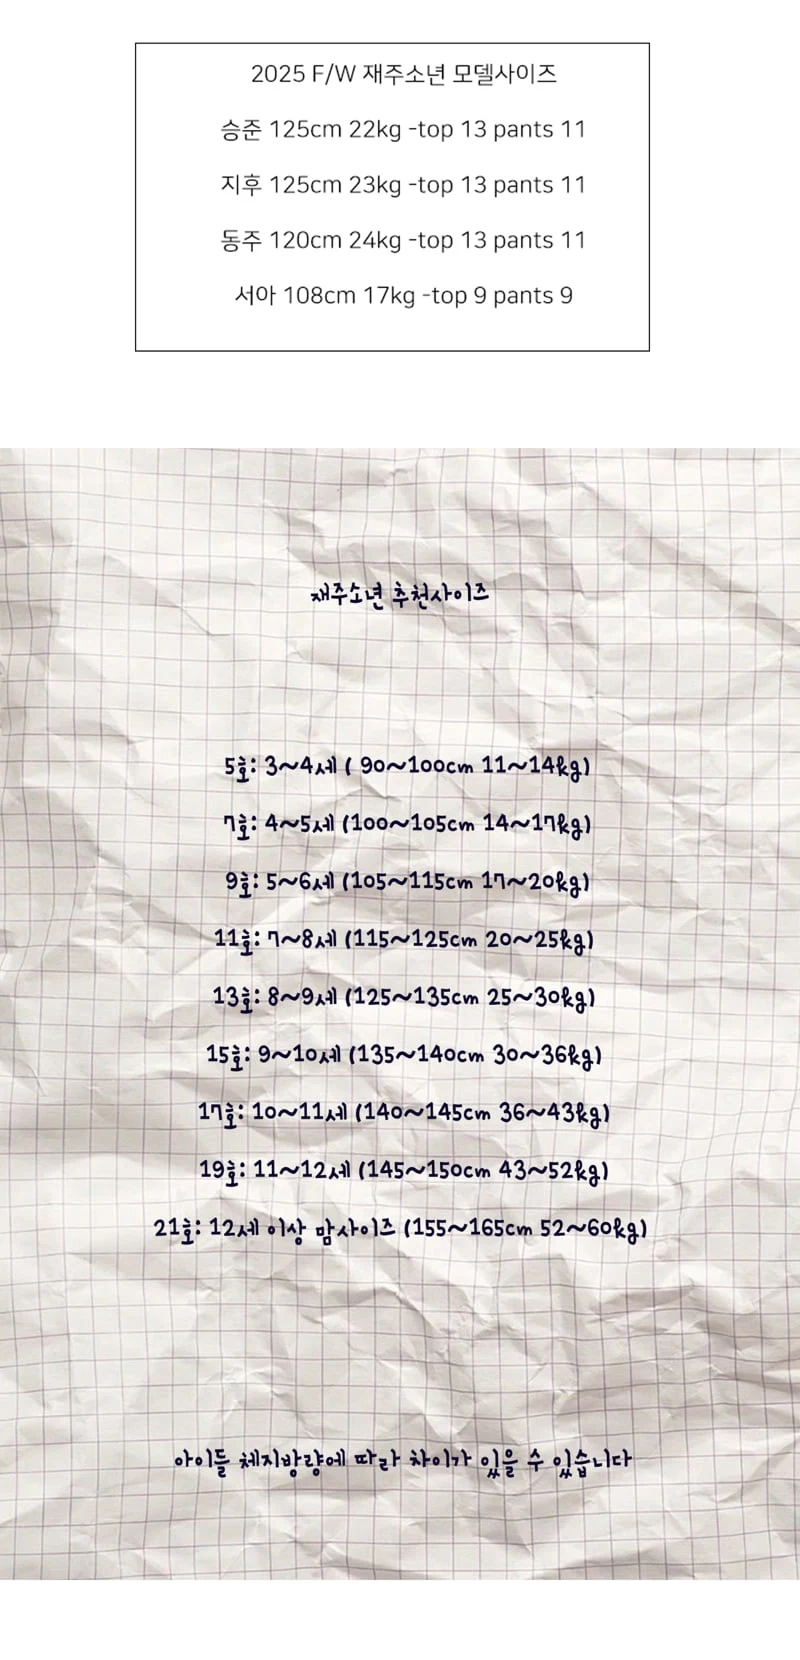 2025 F/W 재주소년 모델사이즈
승준 125cm 22kg -top 13 pants 11
지후 125cm 23kg -top 13 pants 11
동주 120cm 24kg -top 13 pants 11
서아 108cm 17kg -top 9 pants 9
재주소년 추천사이즈
5호: 3~4세 ( 90~100cm 11~14kg)
7호: 4~5세 (100~105cm 14~17kg)
9호: 5~6세 (105~115cm 17~20kg)
11호: 7~8세 (115~125cm 20~25kg)
13호: 8~9세 (125~135cm 25~30kg)
15호: 9~10세 (135~140cm 30~36kg)
17호: 10~11세 (140~145cm 36~43kg)
19호: 11~12세 (145~150cm 43~52kg)
21호: 12세 이상 맘사이즈 (155~165cm 52~60kg)
아이들 체지방량에 따라 차이가 있을 수 있습니다